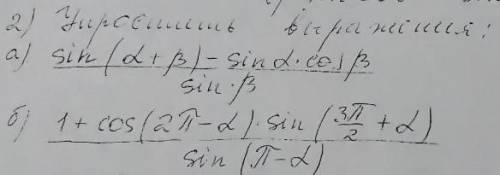 2) Упростить выражения:
а) (sin(α + β) - sin α · cos β) / (sin · β)
б) (1 + cos(2π - α) · sin(3π/2 + α)) / (sin(π - α))